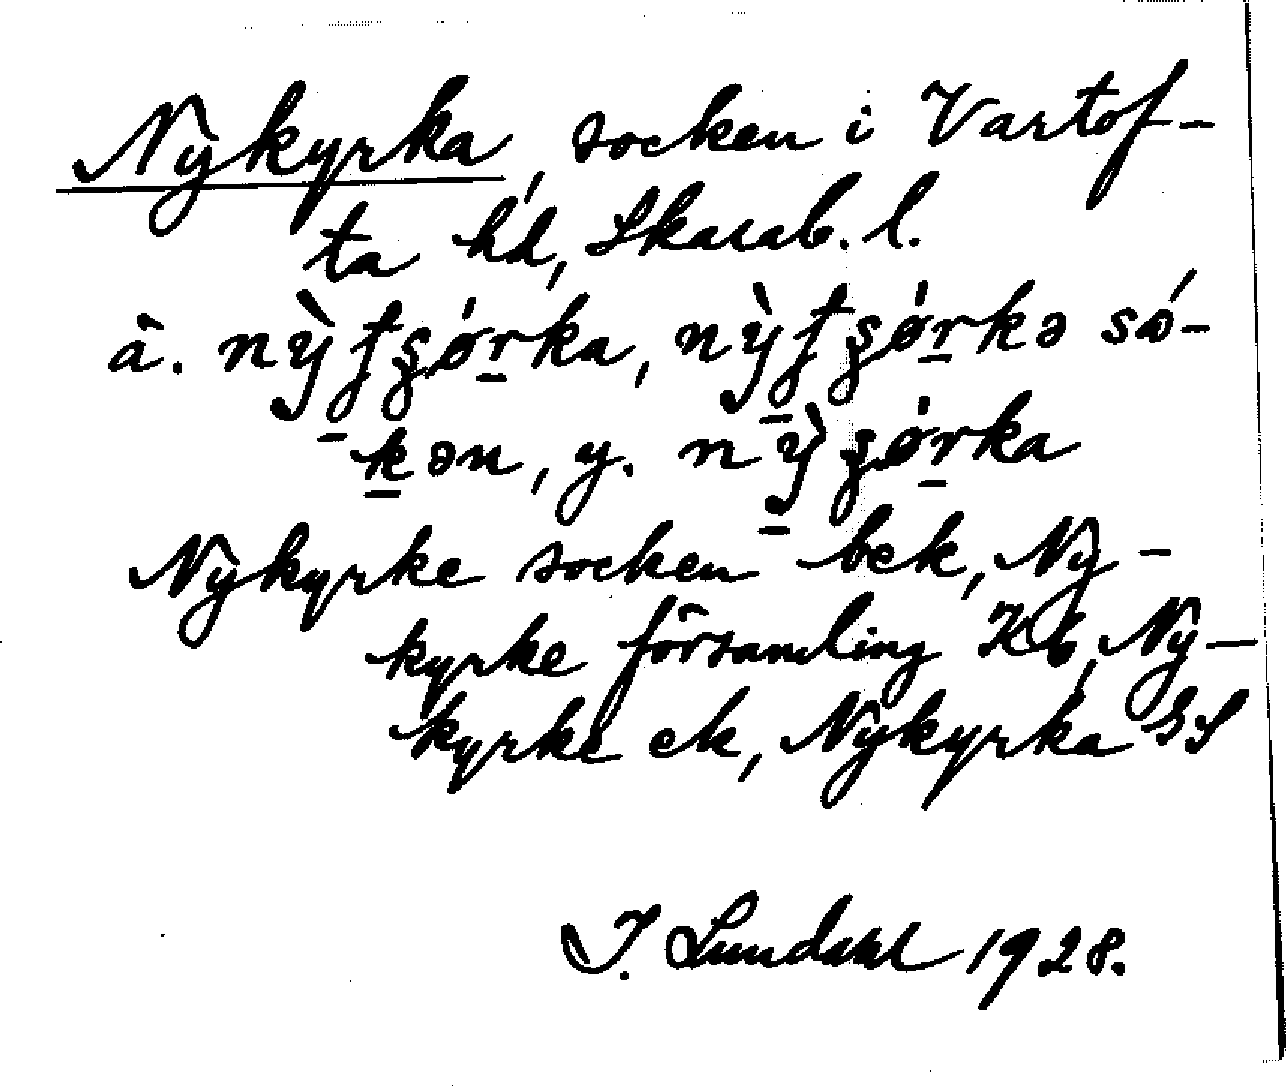 Nykyrka, socken i Vartof-
ta hd, Skarab. l.
ä. nỳʈʂǿr̲ka, nỳʈʂǿr̲kə só-
k̲ən, y. nỳ̲ʂǿr̲ka
Nykyrke socken bek, Ny-
kyrke församling Kb, Ny-
kyrke ek, Nykyrka GS
I. Lundahl 1928.